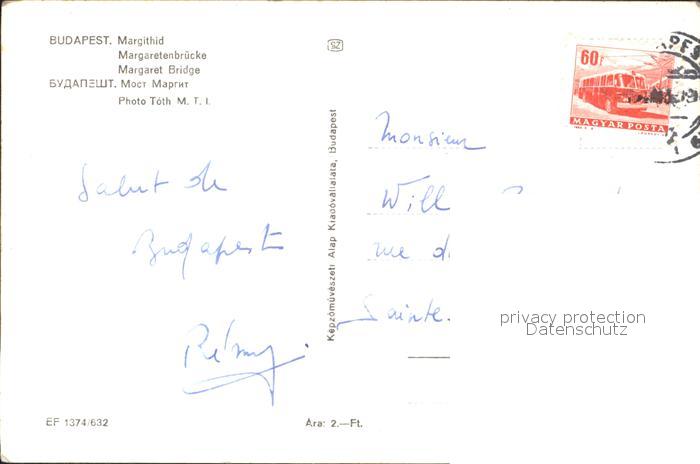 BUDAPEST. Margithid
Margaretenbrücke
Margaret Bridge
БУДАПЕШТ. Мост Маргит
Photo Tóth M. T. I.
Salut de
Budapest
Rémy
EF 1374/632
Ára: 2.—Ft.
Képzőművészeti Alap Kiadóvállalata, Budapest
SZ
60f
MAGYAR POSTA
Monsieur
Will
rue d
Sainte.
privacy protection
Datenschutz